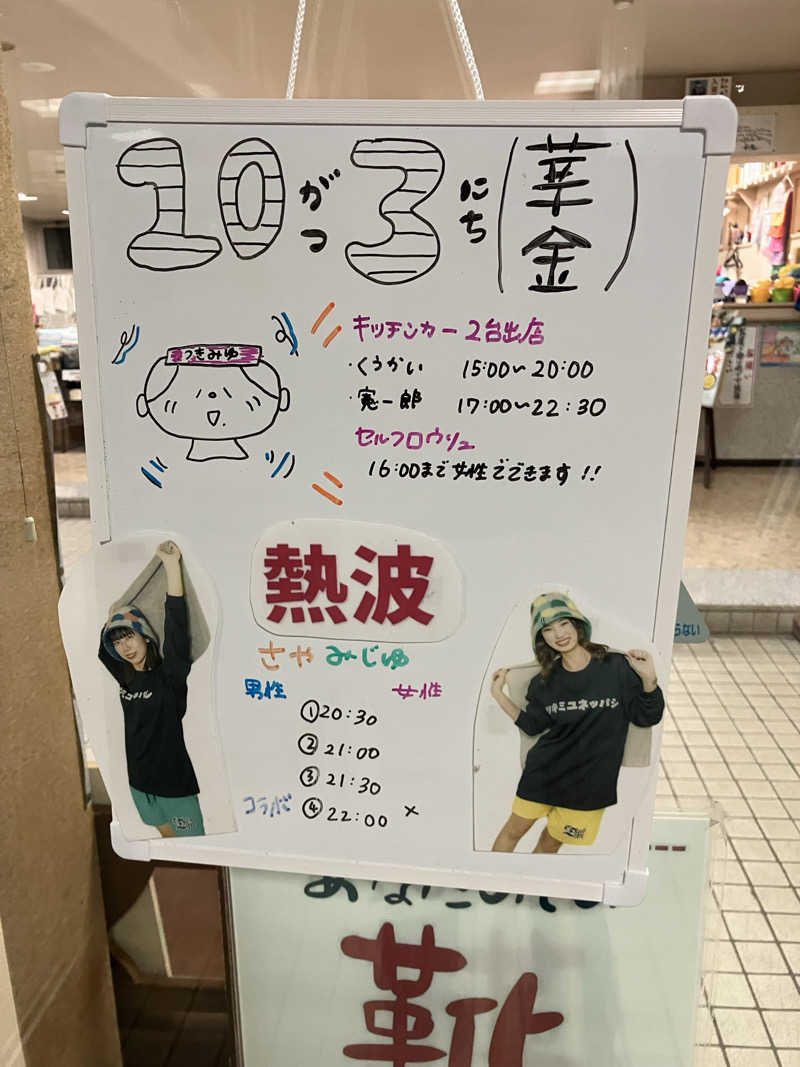 10がつ3にち(華金)
つきみゆ
キッチンカー 2台出店
・くうかい 15:00〜20:00
・憲一郎 17:00〜22:30
セルフロウリュ
16:00まで女性でできます!!
熱波
さや みーじゅ
男性 女性
①20:30
②21:00
③21:30
コラボ ④22:00 ×
ツキミユネッパシ
らない
靴